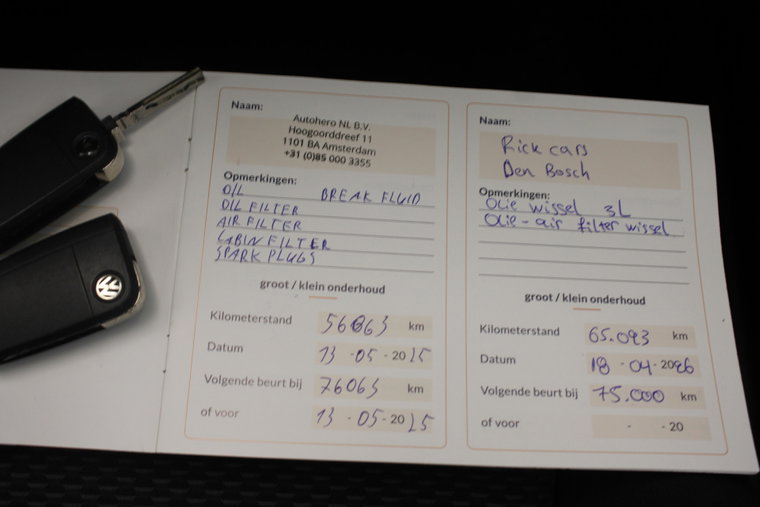 Naam:
Autohero NL B.V.
Hoogoorddreef 11
1101 BA Amsterdam
+31 (0)85 000 3355
Opmerkingen:
OIL BREAK FLUID
OIL FILTER
AIR FILTER
CABIN FILTER
SPARK PLUGS
groot / klein onderhoud
Kilometerstand 56063 km
Datum 13-05-2025
Volgende beurt bij 76063 km
of voor 13-05-2025
Naam:
Rick cars
Den Bosch
Opmerkingen:
Olie wissel 3L
Olie-air filter wissel
groot / klein onderhoud
Kilometerstand 65.093 km
Datum 18-04-2026
Volgende beurt bij 75.000 km
of voor - - 20